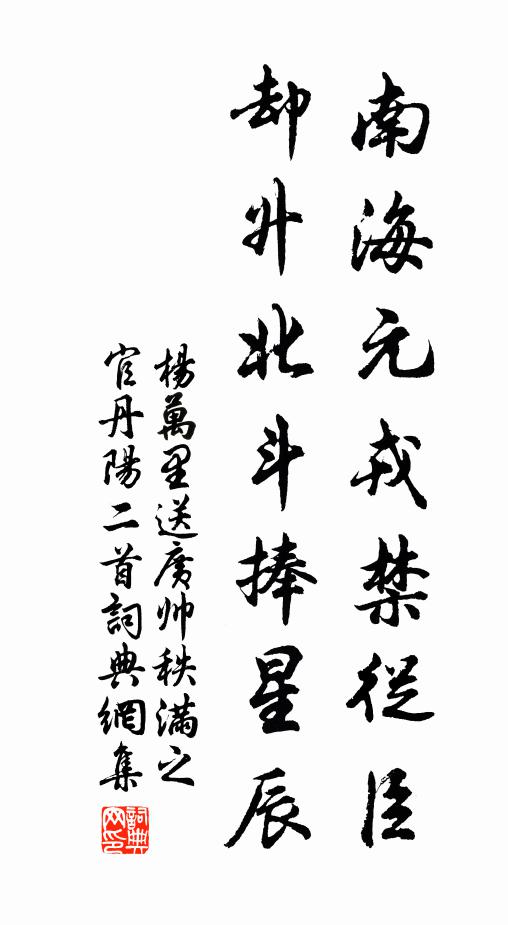 南海元戎禁從臣
却升北斗捧星辰
楊萬里送廣帅秩滿之
官丹陽二首詞典網集
詞典
网印